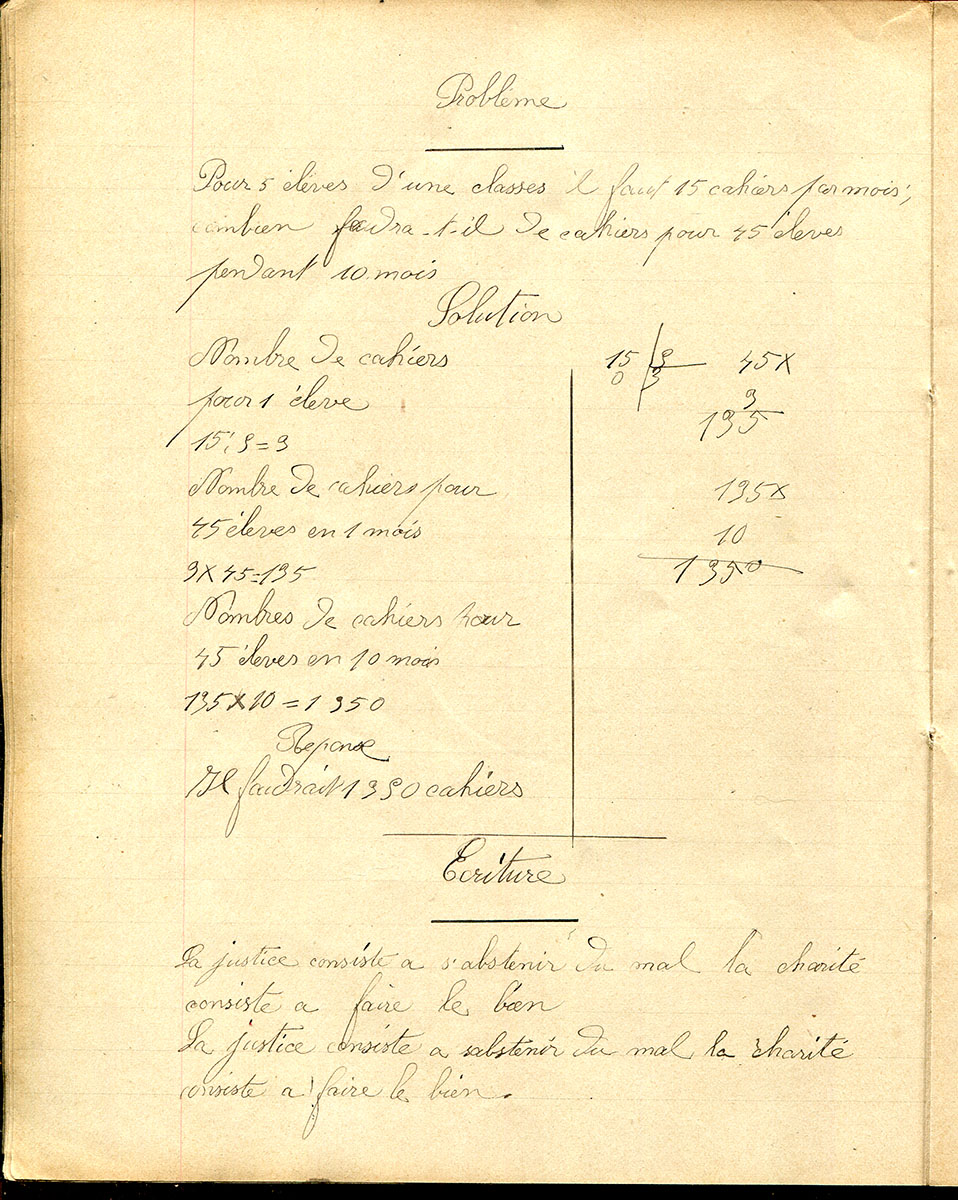 Problème
Pour 5 élèves d'une classes il faut 15 cahiers par mois;
combien faudra-t-il de cahiers pour 45 élèves
pendant 10 mois
Solution
Nombre de cahiers
pour 1 éleve
15 : 5 = 3
Nombre de cahiers pour
45 éleves en 1 mois
3 x 45 = 135
Nombres de cahiers pour
45 éleves en 10 mois
135 x 10 = 1 350
Reponse
Il faudrait 1 350 cahiers
15 5 45 x
0 3
3
135
135 x
10
1350
Ecriture
La justice consiste a s'abstenir du mal la charité
consiste a faire le bien
La justice consiste a sabstenir du mal la charité
consiste a faire le bien.